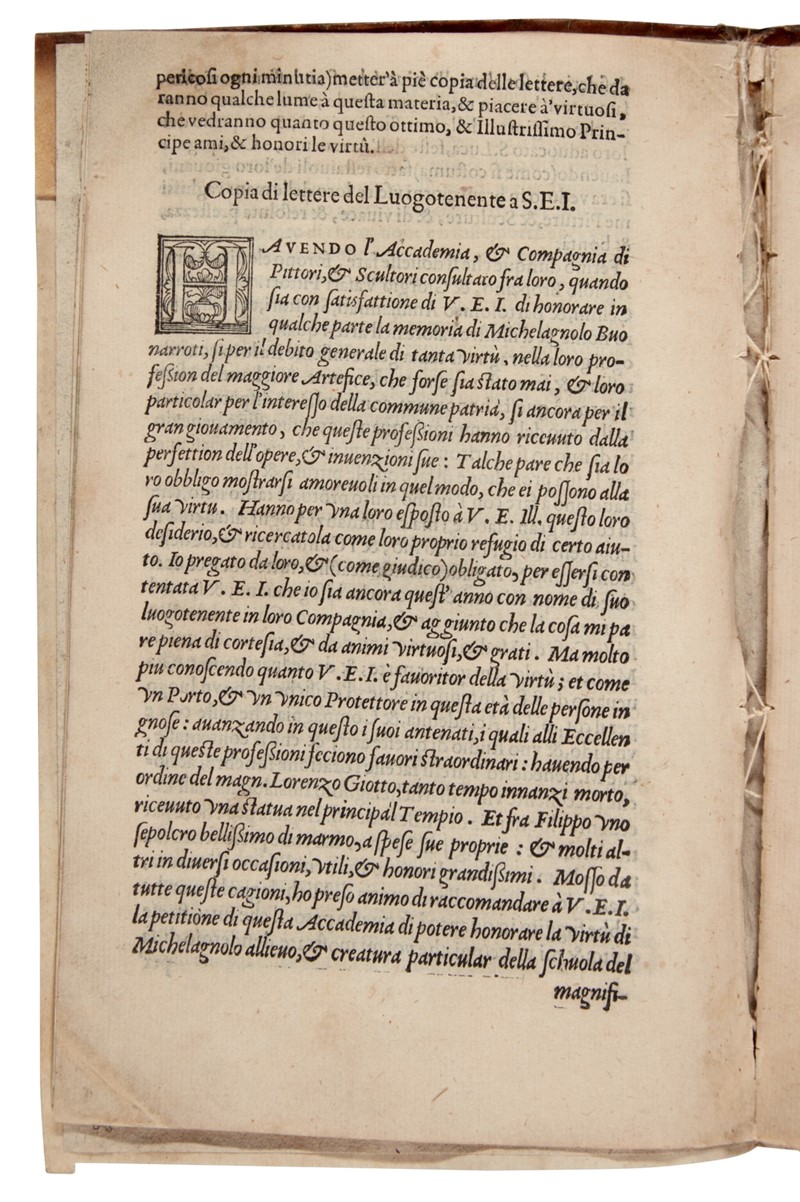 pericoſi ogni minutia) metter'à piè copia delle lettere, che da
ranno qualche lume à queſta materia, & piacere à'virtuoſi,
che vedranno quanto queſto ottimo, & Illuſtriſſimo Prin-
cipe ami, & honori le virtù.
Copia di lettere del Luogotenente a S.E.I.
HAVENDO l'Accademia, & Compagnia di
Pittori, & Scultori conſultato fra loro, quando
ſia con ſatisfattione di V. E. I. di honorare in
qualche parte la memoria di Michelagnolo Buo
narroti, ſi per il debito generale di tanta virtù, nella loro pro-
feßion del maggiore Artefice, che forſe ſia ſtato mai, & loro
particolar per l'intereſſo della commune patria, ſi ancora per il
gran giouamento, che queſte profeßioni hanno riceuuto dalla
perfettion dell'opere, & inuenzioni ſue: Talche pare che ſia lo
ro obbligo moſtrarſi amoreuoli in quel modo, che ei poſſono alla
ſua virtu. Hanno per vna loro eſpoſto à V. E. Ill. queſto loro
deſiderio, & ricercatola come loro proprio refugio di certo aiu-
to. Io pregato da loro, & (come giudico) obligato, per eſſerſi con
tentata V. E. I. che io ſia ancora queſt' anno con nome di ſuo
luogotenente in loro Compagnia, & aggiunto che la coſa mi pa
re piena di corteſia, & da animi virtuoſi, & grati. Ma molto
piu conoſcendo quanto V.E.I. è fauoritor della virtù; et come
vn Porto, & vn vnico Protettore in queſta età delle perſone in
gnoſe: auanzando in queſto i ſuoi antenati, i quali alli Eccellen
ti di queſte profeßioni feciono fauori ſtraordinari: hauendo per
ordine del magn. Lorenzo Giotto, tanto tempo innanzi morto,
riceuuto vna ſtatua nel principal Tempio. Et fra Filippo vno
ſepolcro bellißimo di marmo, a ſpeſe ſue proprie: & molti al-
tri in diuerſi occaſioni, vtili, & honori grandißimi. Moſſo da
tutte queſte cagioni, ho preſo animo di raccomandare à V.E.I.
la petitione di queſta Accademia di potere honorare la virtù di
Michelagnolo allieuo, & creatura particular della ſchuola del
magnifi-